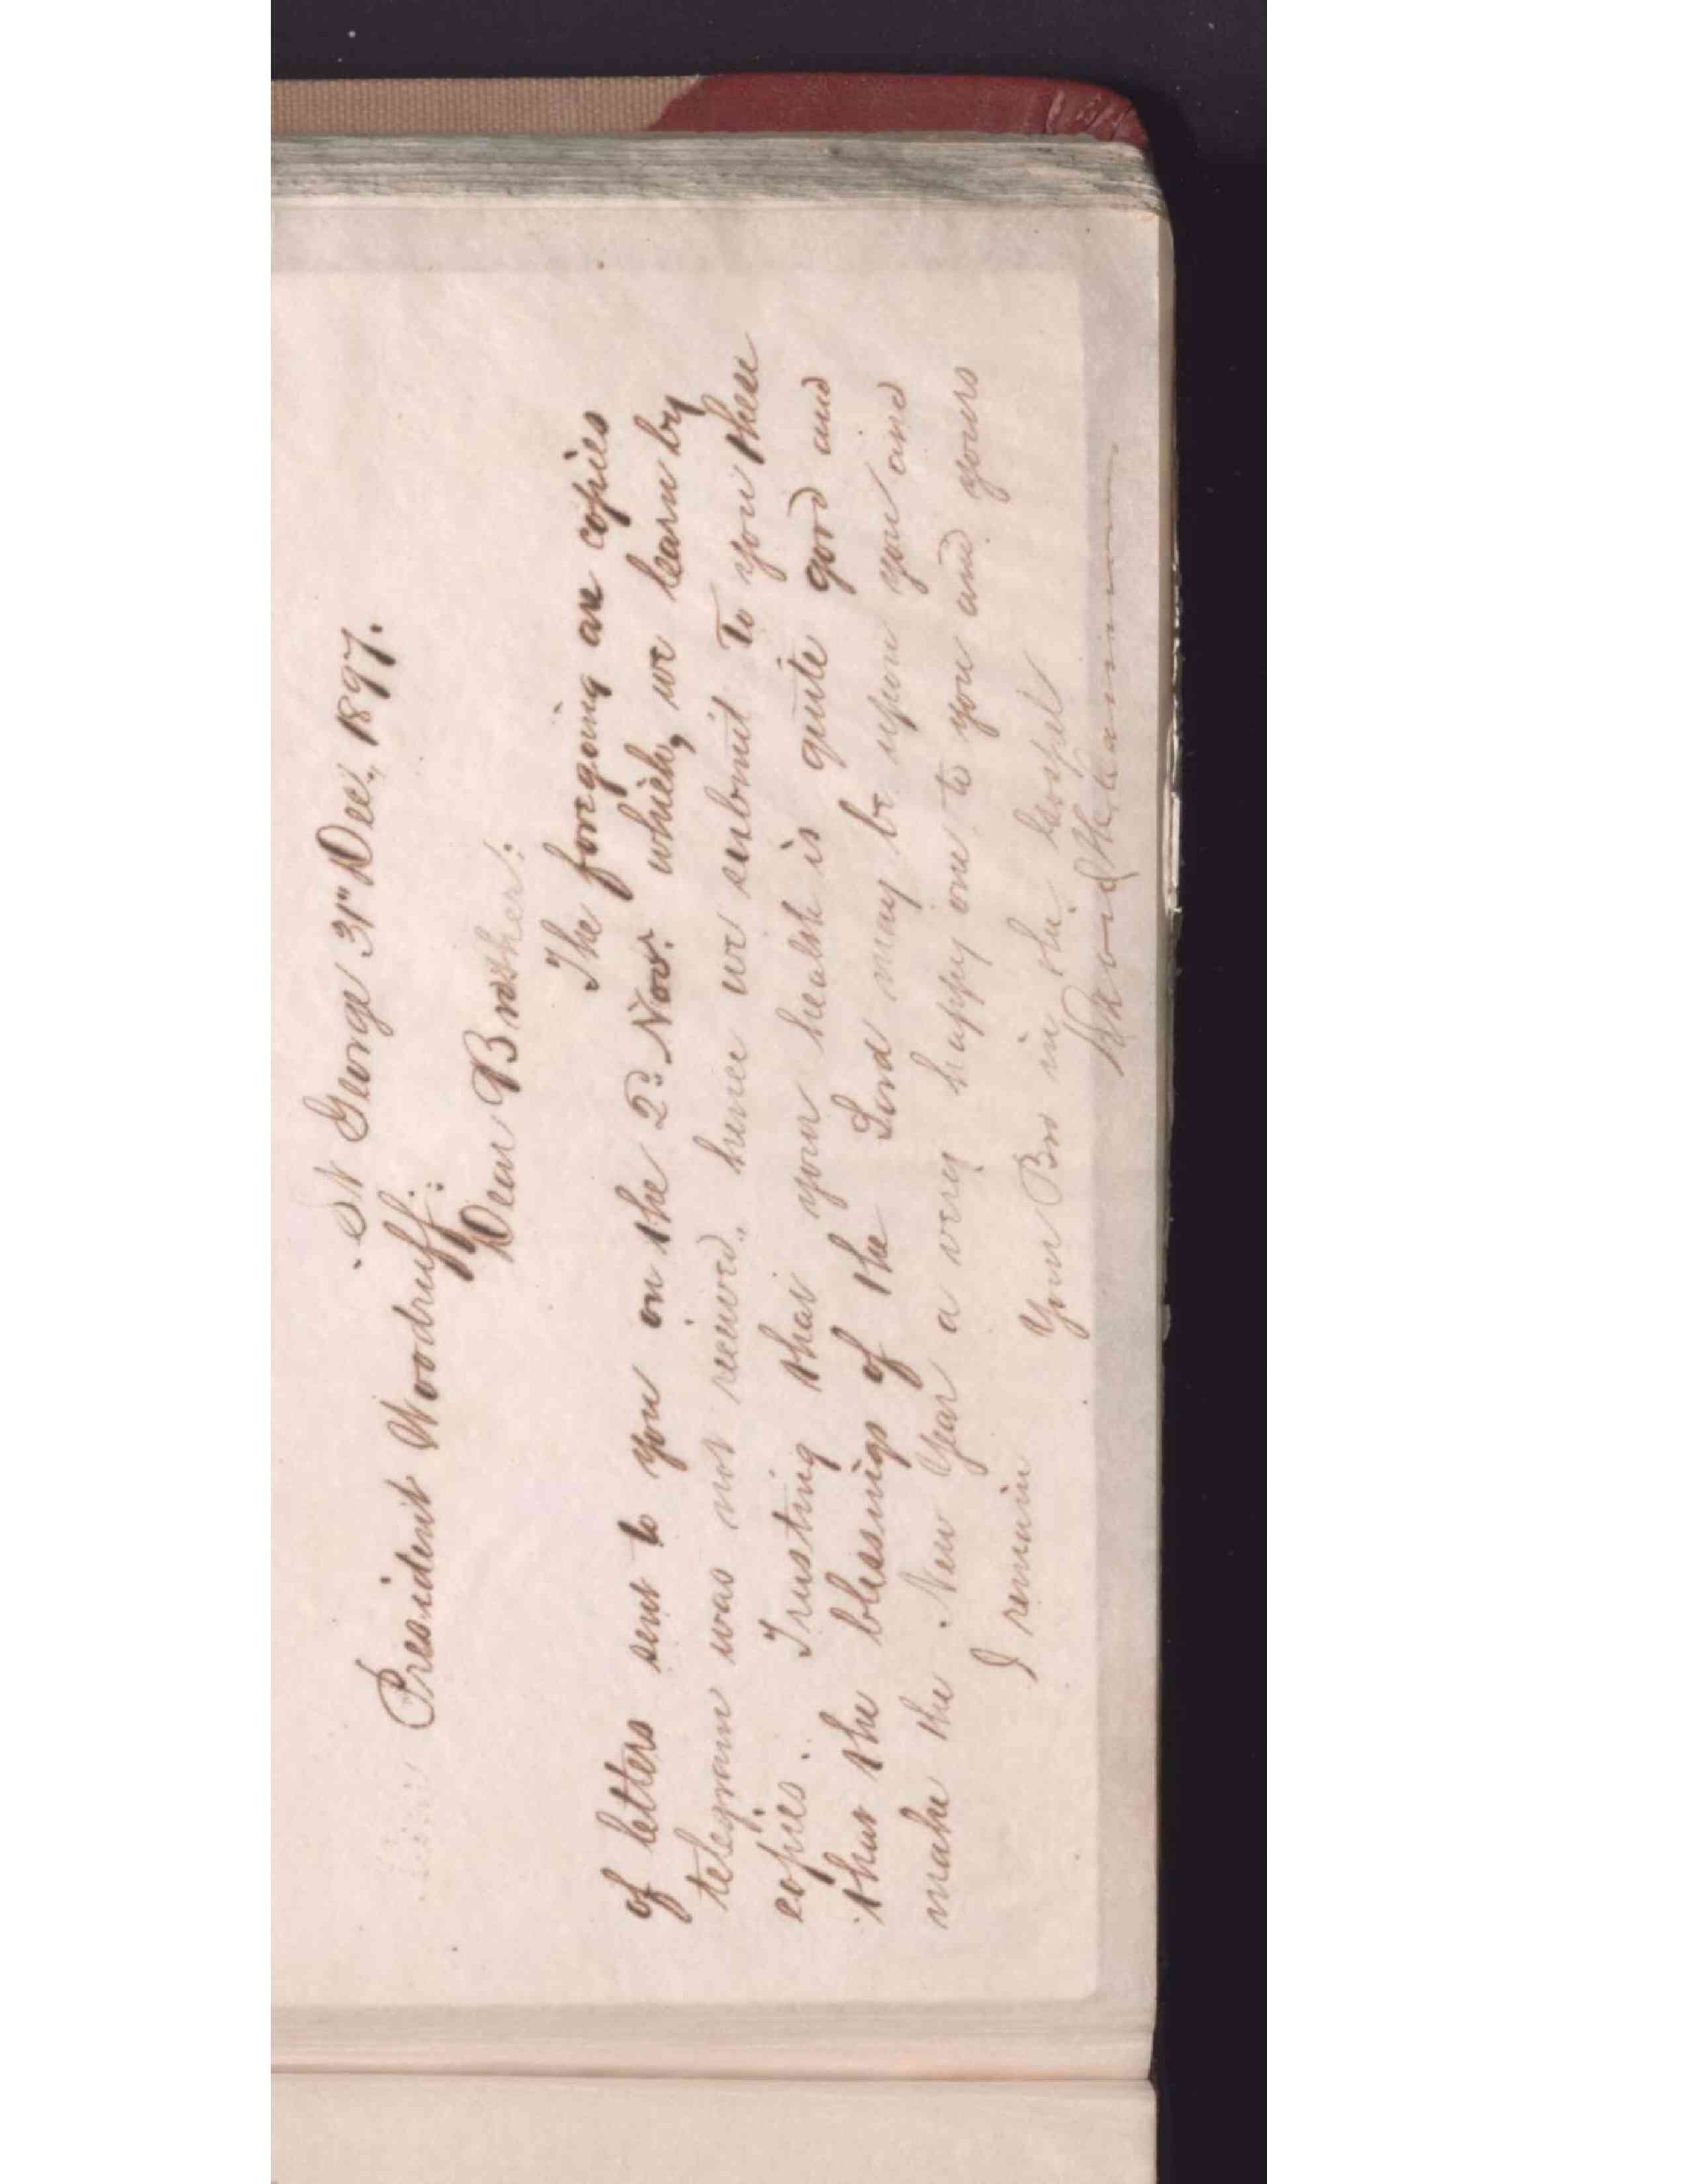 St George 31st Dec. 1897.
President Woodruff:
Dear Brother:
The foregoing are copies
of letters sent to you on the 2d Nov. which, we learn by
telegram was not received, hence we submit to you these
copies. Trusting that your health is quite good and
that the blessings of the Lord may be upon you and
make the New Year a very happy one to you and yours
I remain Your Bro in the Gospel